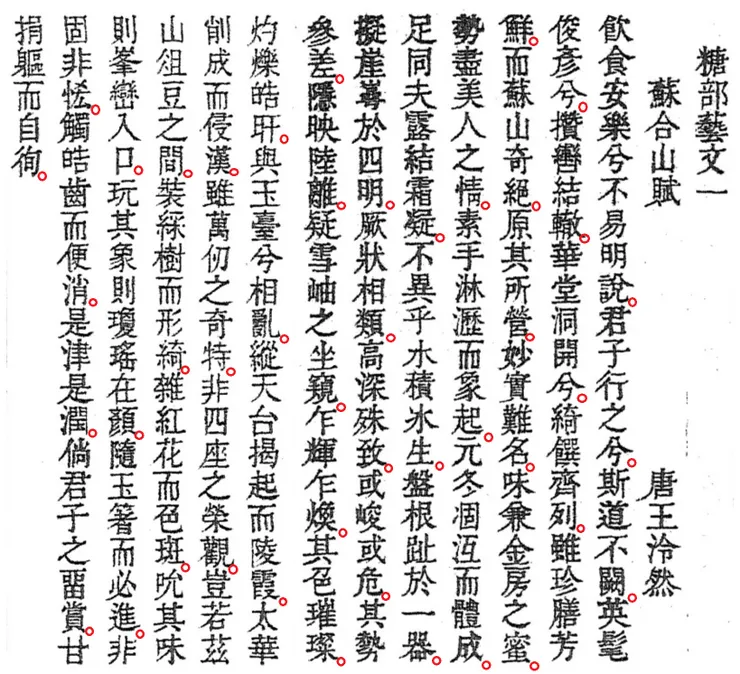 糖部藝文一
蘇合山賦　唐王泠然
飮食安樂兮不易明說。君子行之兮。斯道不闕。英髦
俊彥兮。攢轡結轍。華堂洞開兮。綺饌齊列。雖珍膳芳
鮮。而蘇山奇絕。原其所營。妙實難名。味兼金房之蜜。
勢盡美人之情。素手淋瀝而象起。元冬凅沍而體成。
足同夫露結霜凝。不異乎水積冰生。盤根趾於一器。
擬崖崿於四明。厥狀相類。高深殊致。或峻或危。其勢
參差。隱映陸離。疑雪岫之坐窺。乍輝乍煥。其色璀璨。
灼爍皓旰。與玉臺兮相亂。縱天台揭起而陵霞。太華
削成而侵漢。雖萬仞之奇特。非四座之榮觀。豈若茲
山俎豆之間。裝綵樹而形綺。雜紅花而色斑。吮其味
則峯巒入口。玩其象則瓊瑤在顏。隨玉箸而必進。非
固非恡。觸皓齒而便消。是津是潤。倘君子之畱賞。甘
捐軀而自徇。